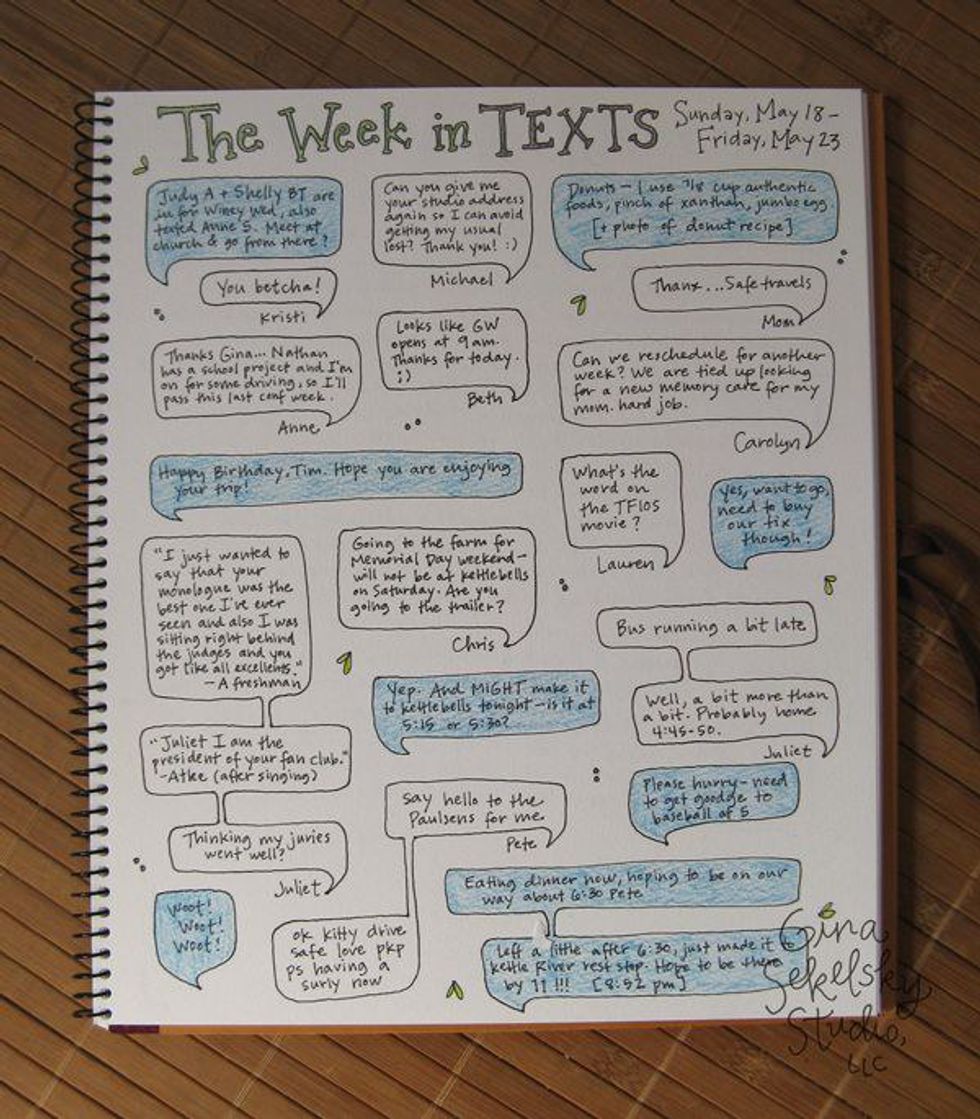 The Week in TEXTS
Sunday, May 18 –
Friday, May 23
Judy A + Shelly BT are
in for Winey Wed, also
texted Anne S. Meet at
church & go from there?
You betcha!
Kristi
Thanks Gina... Nathan
has a school project and I'm
on for some driving, so I'll
pass this last conf week.
Anne
Can you give me
your studio address
again so I can avoid
getting my usual
lost? Thank you! :)
Michael
Looks like GW
opens at 9am.
Thanks for today.
;)
Beth
Donuts – I use 7/8 cup authentic
foods, pinch of xanthan, jumbo egg
[+ photo of donut recipe]
Thanx...Safe travels
Mom
Can we reschedule for another
week? We are tied up looking
for a new memory care for my
mom. hard job.
Carolyn
Happy Birthday, Tim. Hope you are enjoying
your trip!
What's the
word on
the TFIOS
movie?
Lauren
yes, want to go,
need to buy
our tix
though!
"I just wanted to
say that your
monologue was the
best one I've ever
seen and also I was
sitting right behind
the judges and you
got like all excellents."
– A freshman
"Juliet I am the
president of your fan club."
– Atlee (after singing)
Thinking my juries
went well?
Juliet
Woot!
Woot!
Woot!
Going to the farm for
Memorial Day weekend –
will not be at kettlebells
on Saturday. Are you
going to the trailer?
Chris
Yep. And MIGHT make it
to kettlebells tonight – is it at
5:15 or 5:30?
Bus running a bit late
Well, a bit more than
a bit. Probably home
4:45-50.
Juliet
Please hurry – need
to get goodge to
baseball at 5
Say hello to the
Paulsens for me.
Pete
ok kitty drive
safe love pkp
ps having a
surly now
Eating dinner now, hoping to be on our
way about 6:30 Pete
Left a little after 6:30, just made it to
Kettle River rest stop. Hope to be there
by 11!!! [8:52 pm]
Gina
Sekelsky
Studio,
LLC